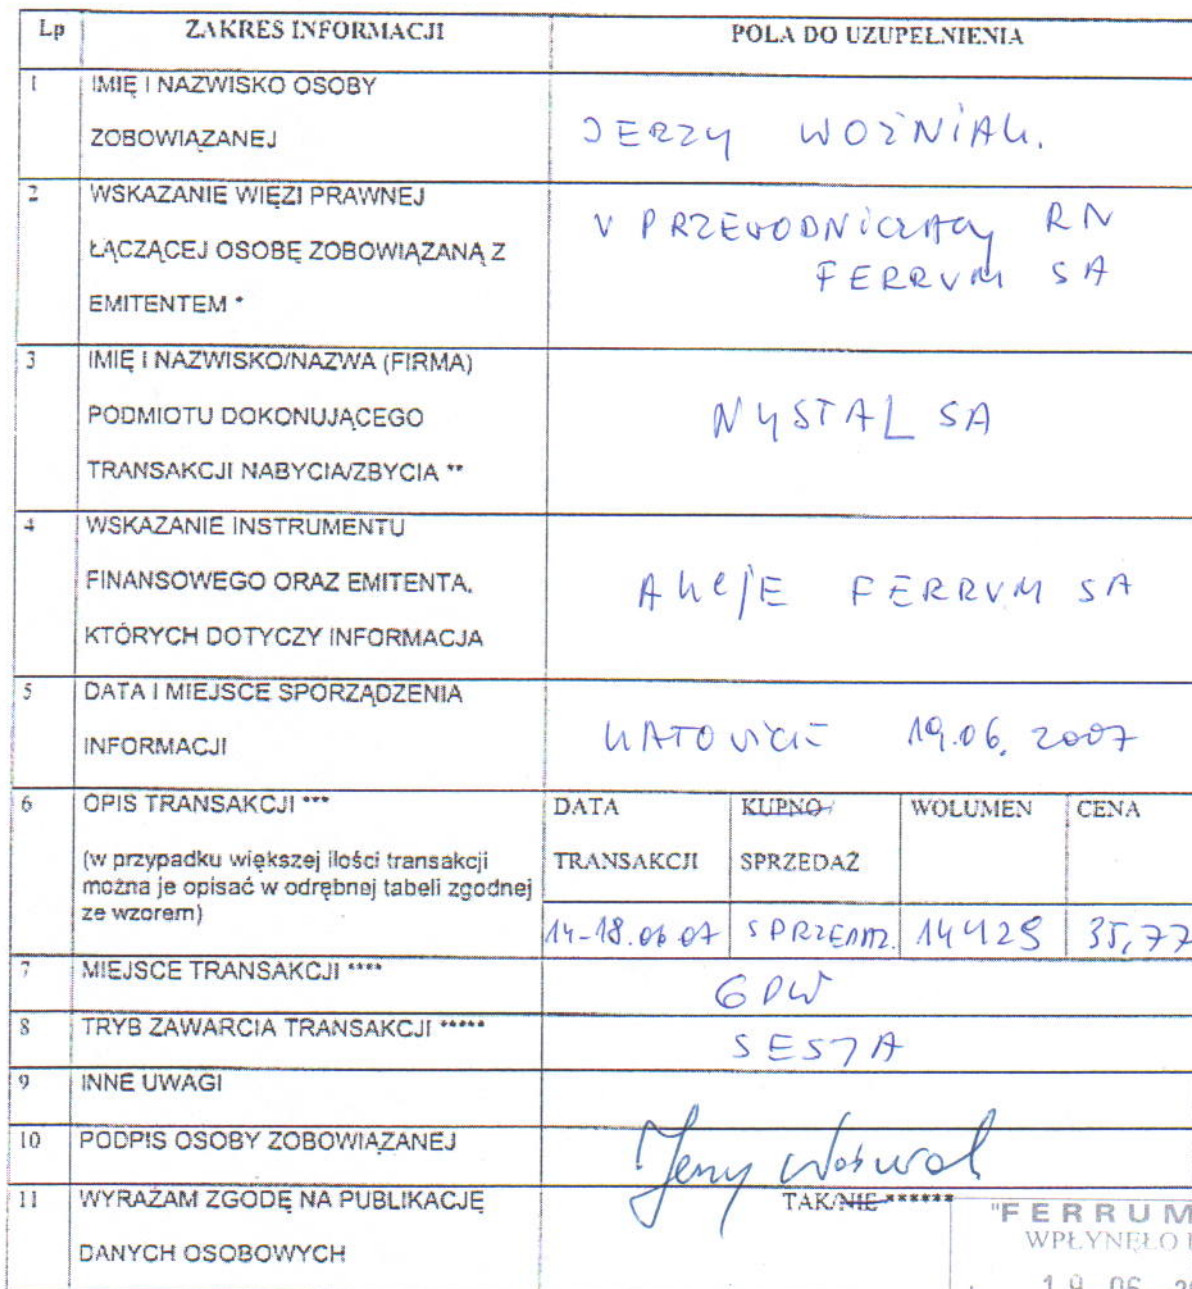 Lp ZAKRES INFORMACJI POLA DO UZUPEŁNIENIA
1 IMIĘ I NAZWISKO OSOBY
ZOBOWIĄZANEJ
JERZY WOŹNIAK.
2 WSKAZANIE WIĘZI PRAWNEJ
ŁĄCZĄCEJ OSOBĘ ZOBOWIĄZANĄ Z
EMITENTEM *
V PRZEWODNICZĄCY RN
FERRUM SA
3 IMIĘ I NAZWISKO/NAZWA (FIRMA)
PODMIOTU DOKONUJĄCEGO
TRANSAKCJI NABYCIA/ZBYCIA **
NYSTAL SA
4 WSKAZANIE INSTRUMENTU
FINANSOWEGO ORAZ EMITENTA,
KTÓRYCH DOTYCZY INFORMACJA
AKCJE FERRUM SA
5 DATA I MIEJSCE SPORZĄDZENIA
INFORMACJI
KATOWICE 19.06.2007
6 OPIS TRANSAKCJI ***
(w przypadku większej ilości transakcji
można je opisać w odrębnej tabeli zgodnej
ze wzorem)
DATA KUPNO/ WOLUMEN CENA
TRANSAKCJI SPRZEDAŻ
14-18.06 07 SPRZEDAŻ. 14429 35,77
7 MIEJSCE TRANSAKCJI ****
GPW
8 TRYB ZAWARCIA TRANSAKCJI *****
SESJA
9 INNE UWAGI
10 PODPIS OSOBY ZOBOWIĄZANEJ
Jerzy Woźniak
11 WYRAŻAM ZGODĘ NA PUBLIKACJĘ
DANYCH OSOBOWYCH
TAK/NIE ******
"FERRUM
WPŁYNĘŁO
19 06